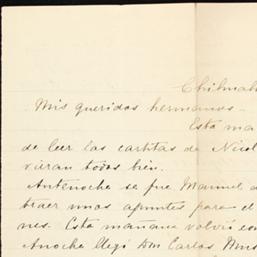 Chihuah
Mis queridos hermanos.
Esta ma
de leer las cartitas de Nicol
vieran todos bien.
Antenoche se fue Manuel a
traer unos apuntes para el
nes. Esta mañana volvió co
Anoche llegó Don Carlos Muñ